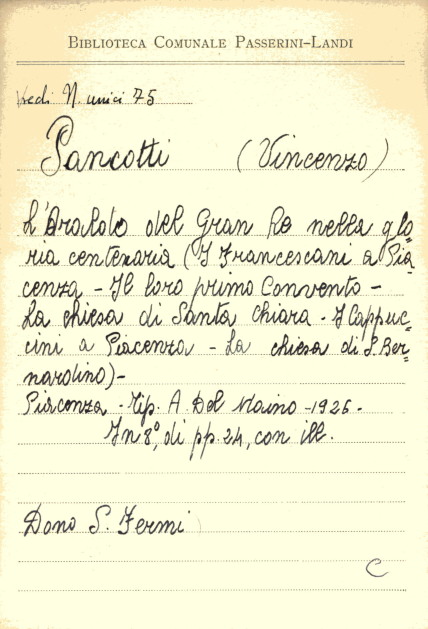 BIBLIOTECA COMUNALE PASSERINI-LANDI
Vedi N. unici 75
Pancotti (Vincenzo)
L'Araldo del Gran Re nella glo=
ria centenaria (I Francescani a Pia=
cenza - Il loro primo Convento -
La chiesa di Santa Chiara - I Cappuc=
cini a Piacenza - La chiesa di S. Ber=
nardino) -
Piacenza - Tip. A Del Maino - 1926 -
In 8°, di pp. 24, con ill.
Dono S. Fermi
C